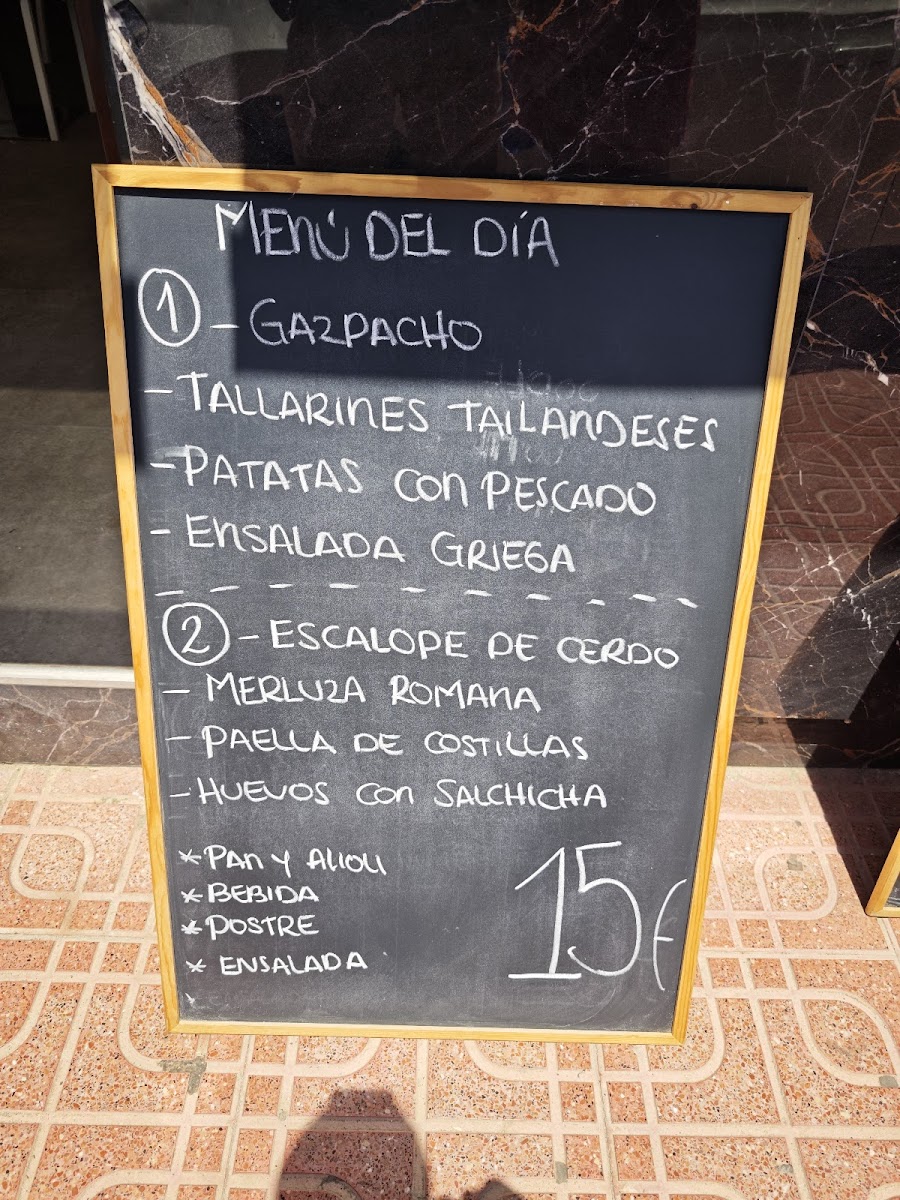 MENÚ DEL DÍA
1 - GAZPACHO
- TALLARINES TAILANDESES
- PATATAS CON PESCADO
- ENSALADA GRIEGA
2 - ESCALOPE DE CERDO
- MERLUZA ROMANA
- PAELLA DE COSTILLAS
- HUEVOS CON SALCHICHA
* PAN Y ALIOLI
* BEBIDA
* POSTRE
* ENSALADA
15€